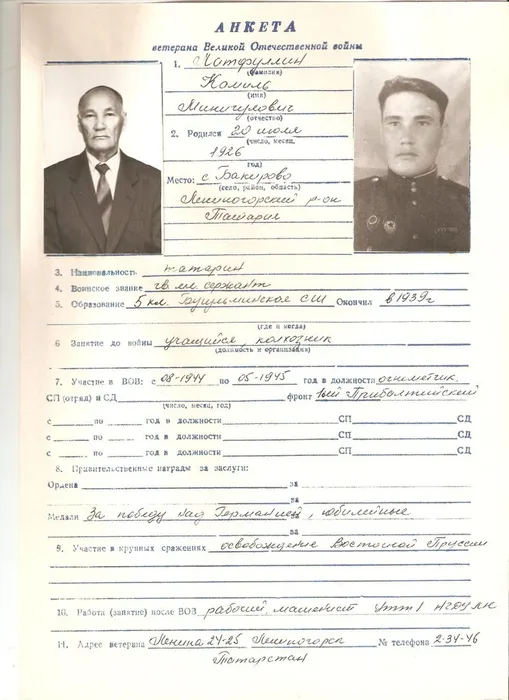 АНКЕТА
ветерана Великой Отечественной войны
1. Латфуллин
(фамилия)
Камиль
(имя)
Минигулович
(отчество)
2. Родился 20 июля
(число, месяц,
1926
год)
Место: с Бакирово
(село, район, область)
Лениногорский р-он
Татарии
3. Национальность татарин
4. Воинское звание гв мл сержант
5. Образование 5 кл. СШ Окончил в 1939г
(где и когда)
6 Занятие до войны учащийся, колхозник
(должность и организация)
7. Участие в ВОВ: с 08-1944 по 05-1945 год в должности огнеметчик
СП (отряд) и СД фронт 1ый Прибалтийский
(число, месяц, год)
с по год в должности СП СД
с по год в должности СП СД
с по год в должности СП СД
8. Правительственные награды за заслуги:
Ордена за
за
Медали За победу над Германией, юбилейные
за
9. Участие в крупных сражениях освобождение Восточной Пруссии
10. Работа (занятие) после ВОВ рабочий, машинист УТТ 1 НГДУ ЛН
11. Адрес ветерана Ленина 24-25 Лениногорск № телефона 2-34-46
Татарстан